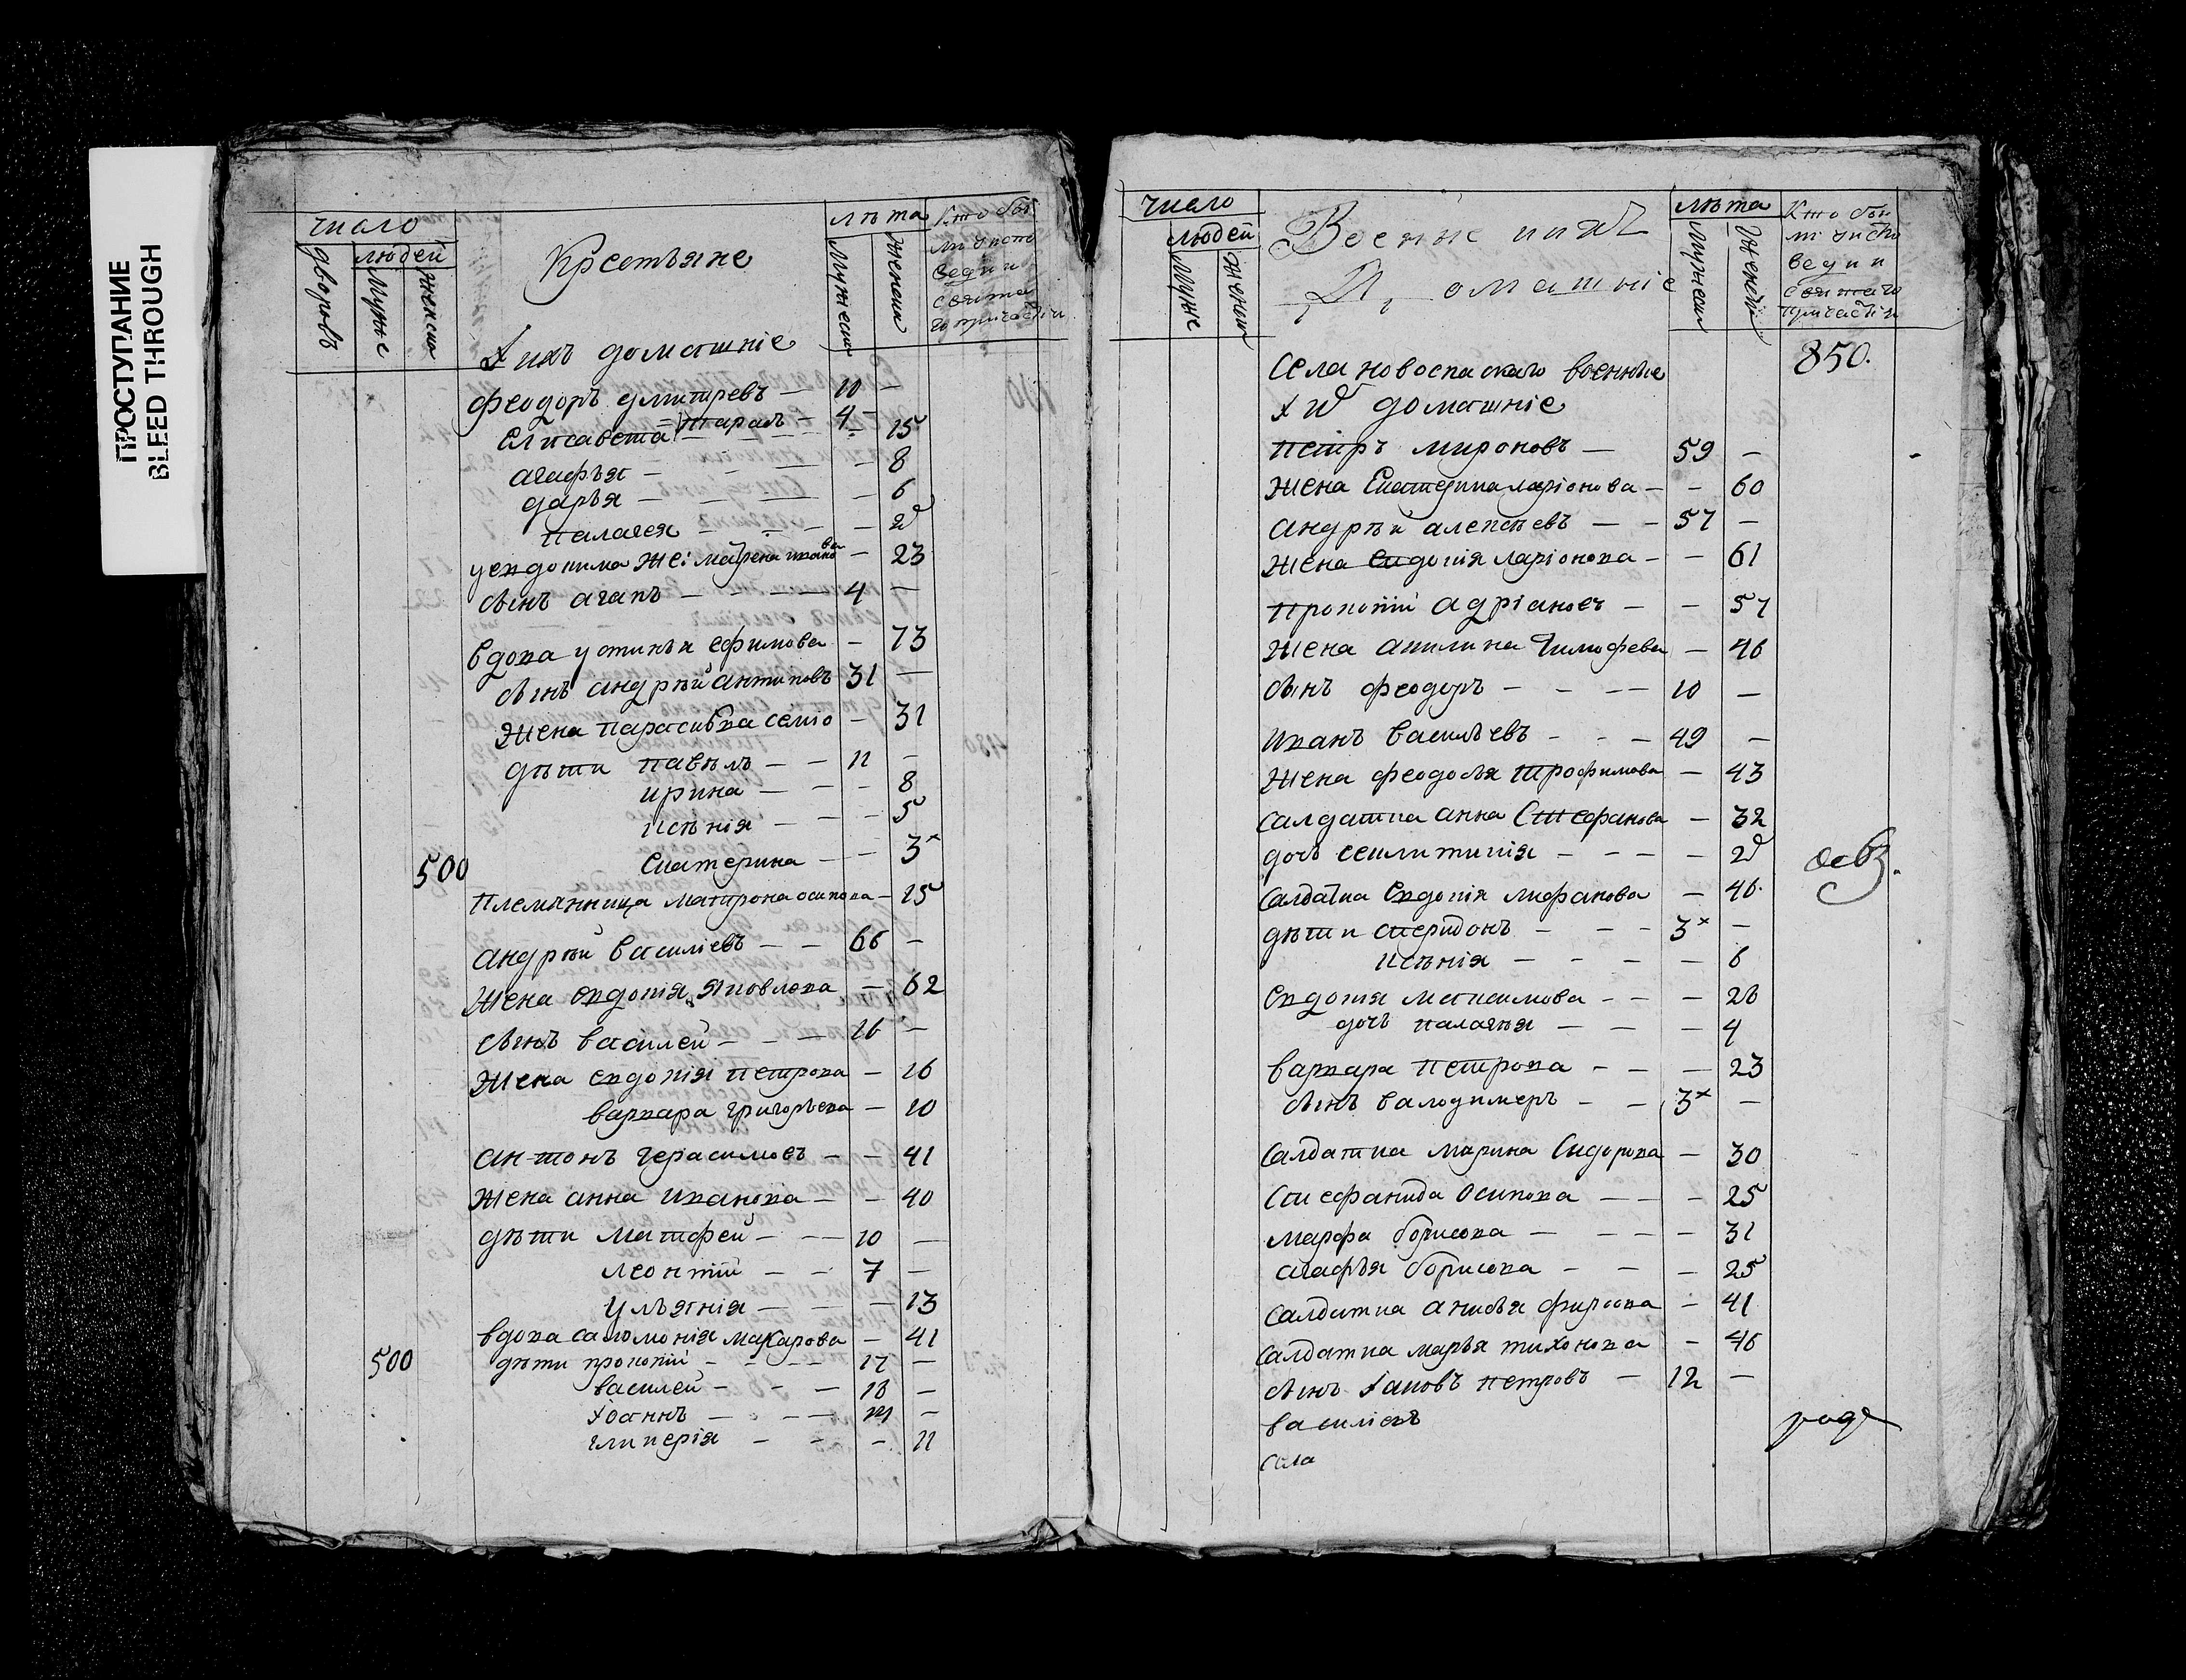 ПРОСТУПАНИЕ
BLEED THROUGH
число
дворовъ
людей
Мужс
женски
Крестьяне
лѣта
Мужески
женски
Кто бы
ли у испо
веди и
святаго
причастiи
ꙇ ихъ домашнiе
Феодоръ дмитревъ — 10 —
Тарасъ — 4 —
Елисавета — — 15
агафья — — 8
дарья — — 6
палагея — — 2
у евдокима же: матрена иванова — 23
сынъ агапъ — 4 —
вдова устинья ефимова — 73
сынъ андрѣй антиповъ 31 —
жена парасковья семіо — 31
дѣти павелъ — — 11 —
ирина — — — 8
ксѣнiя — — — 5
500 екатерина — — 3
племянница матрона осипова — 15
андрѣй василiевъ — — 66 —
жена евдокiя яковлева — 62
сынъ василей — — — 26 —
жена евдокiя петрова — 26
варвара григорьева — 20
антонъ герасимовъ — — 41
жена анна иванова — — 40
дѣти матфей — — 10 —
леонтiй — — 7 —
ульянiя — — — 13
вдова саломонiя макарова — 41
500 дѣти прокопiй — — — 17 —
василей — — — 18 —
ꙇоаннъ — — — —
гликерiя — — — 11
число
людей
Мужс
женски
Военые ихъ
Домашнiе
лѣта
Мужески
женски
Кто бы
ли у испо
веди и
святаго
причастiи
850.
Села новоспаскаго военные
домашнiе
петръ мироновъ — 59 —
жена екатерина ларiонова — — 60
андрѣй алексѣевъ — — 57 —
жена евдокiя ларiонова — — 61
прокопiй адрiановъ — — 57
жена акилина тимофева — 46
сынъ феодоръ — — — — 10 —
иванъ васильевъ — — — 49 —
жена феодосья трофимова — 43
салдатка анна стефанова — 32
дочь — — — — 2
салдатка евдокiя — 46.
дѣти спиридонъ — — — 3 —
ксѣнiя — — — — 6
евдокiя максимова — — — 26
дочь палагѣя — — — 4
варвара петрова — — — 23
сынъ валодимеръ — — 3 —
салдатка марина сидорова — 30
стефанида осипова — — — 25
марфа борисова — — — — 31
агафья борисова — — — 25
салдатка анисья фирсова — 41
салдатка марья тихонова — 46
сынъ ꙇаковъ петровъ — 12 —
василiевъ
села